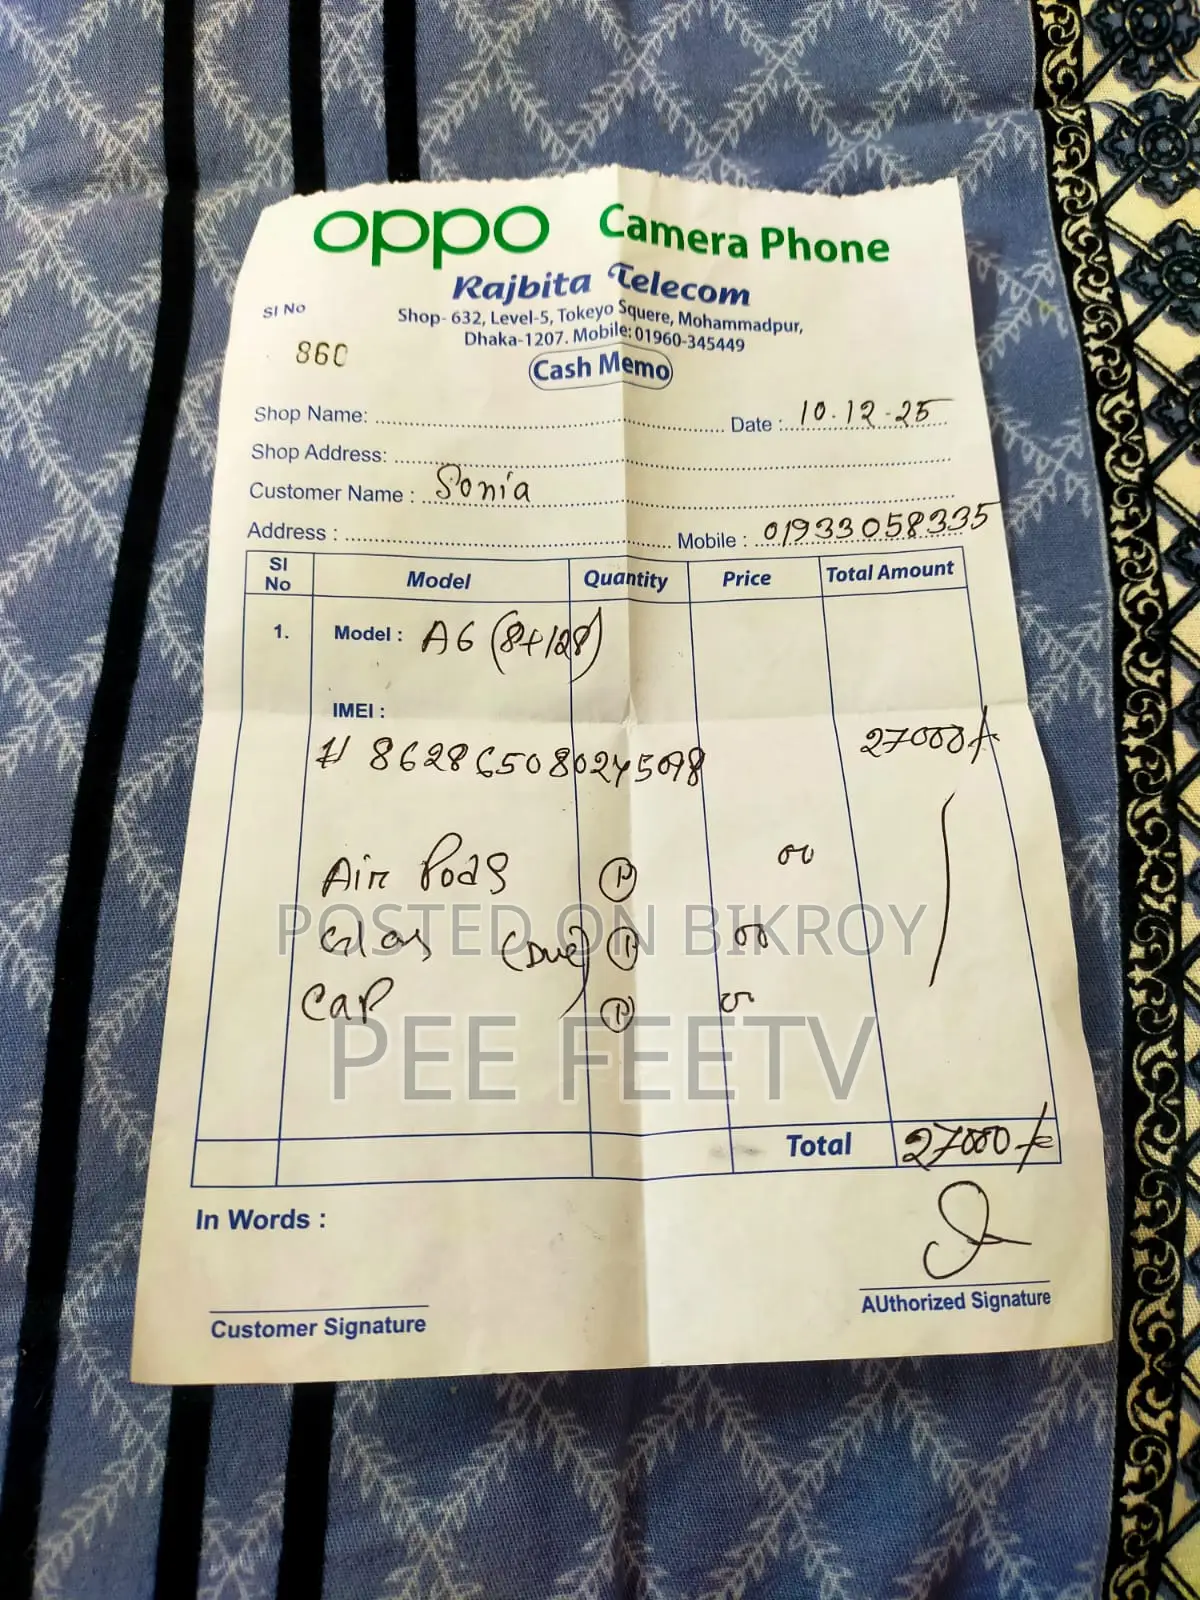 oppo Camera Phone
Rajbita Telecom
Sl No
Shop- 632, Level-5, Tokeyo Squere, Mohammadpur,
Dhaka-1207. Mobile: 01960-345449
860
Cash Memo
Shop Name: Date : 10.12.25
Shop Address:
Customer Name : Sonia
Address : Mobile : 01933058335
Sl No Model Quantity Price Total Amount
1. Model : A6 (8+128)
IMEI :
# 862865080245098 27000/=
Air Pods 1 00
Glas (Due) 1 00
Cap 1 00
POSTED ON BIKROY
PEE FEETV
Total 27000/=
In Words :
Customer Signature
AUthorized Signature